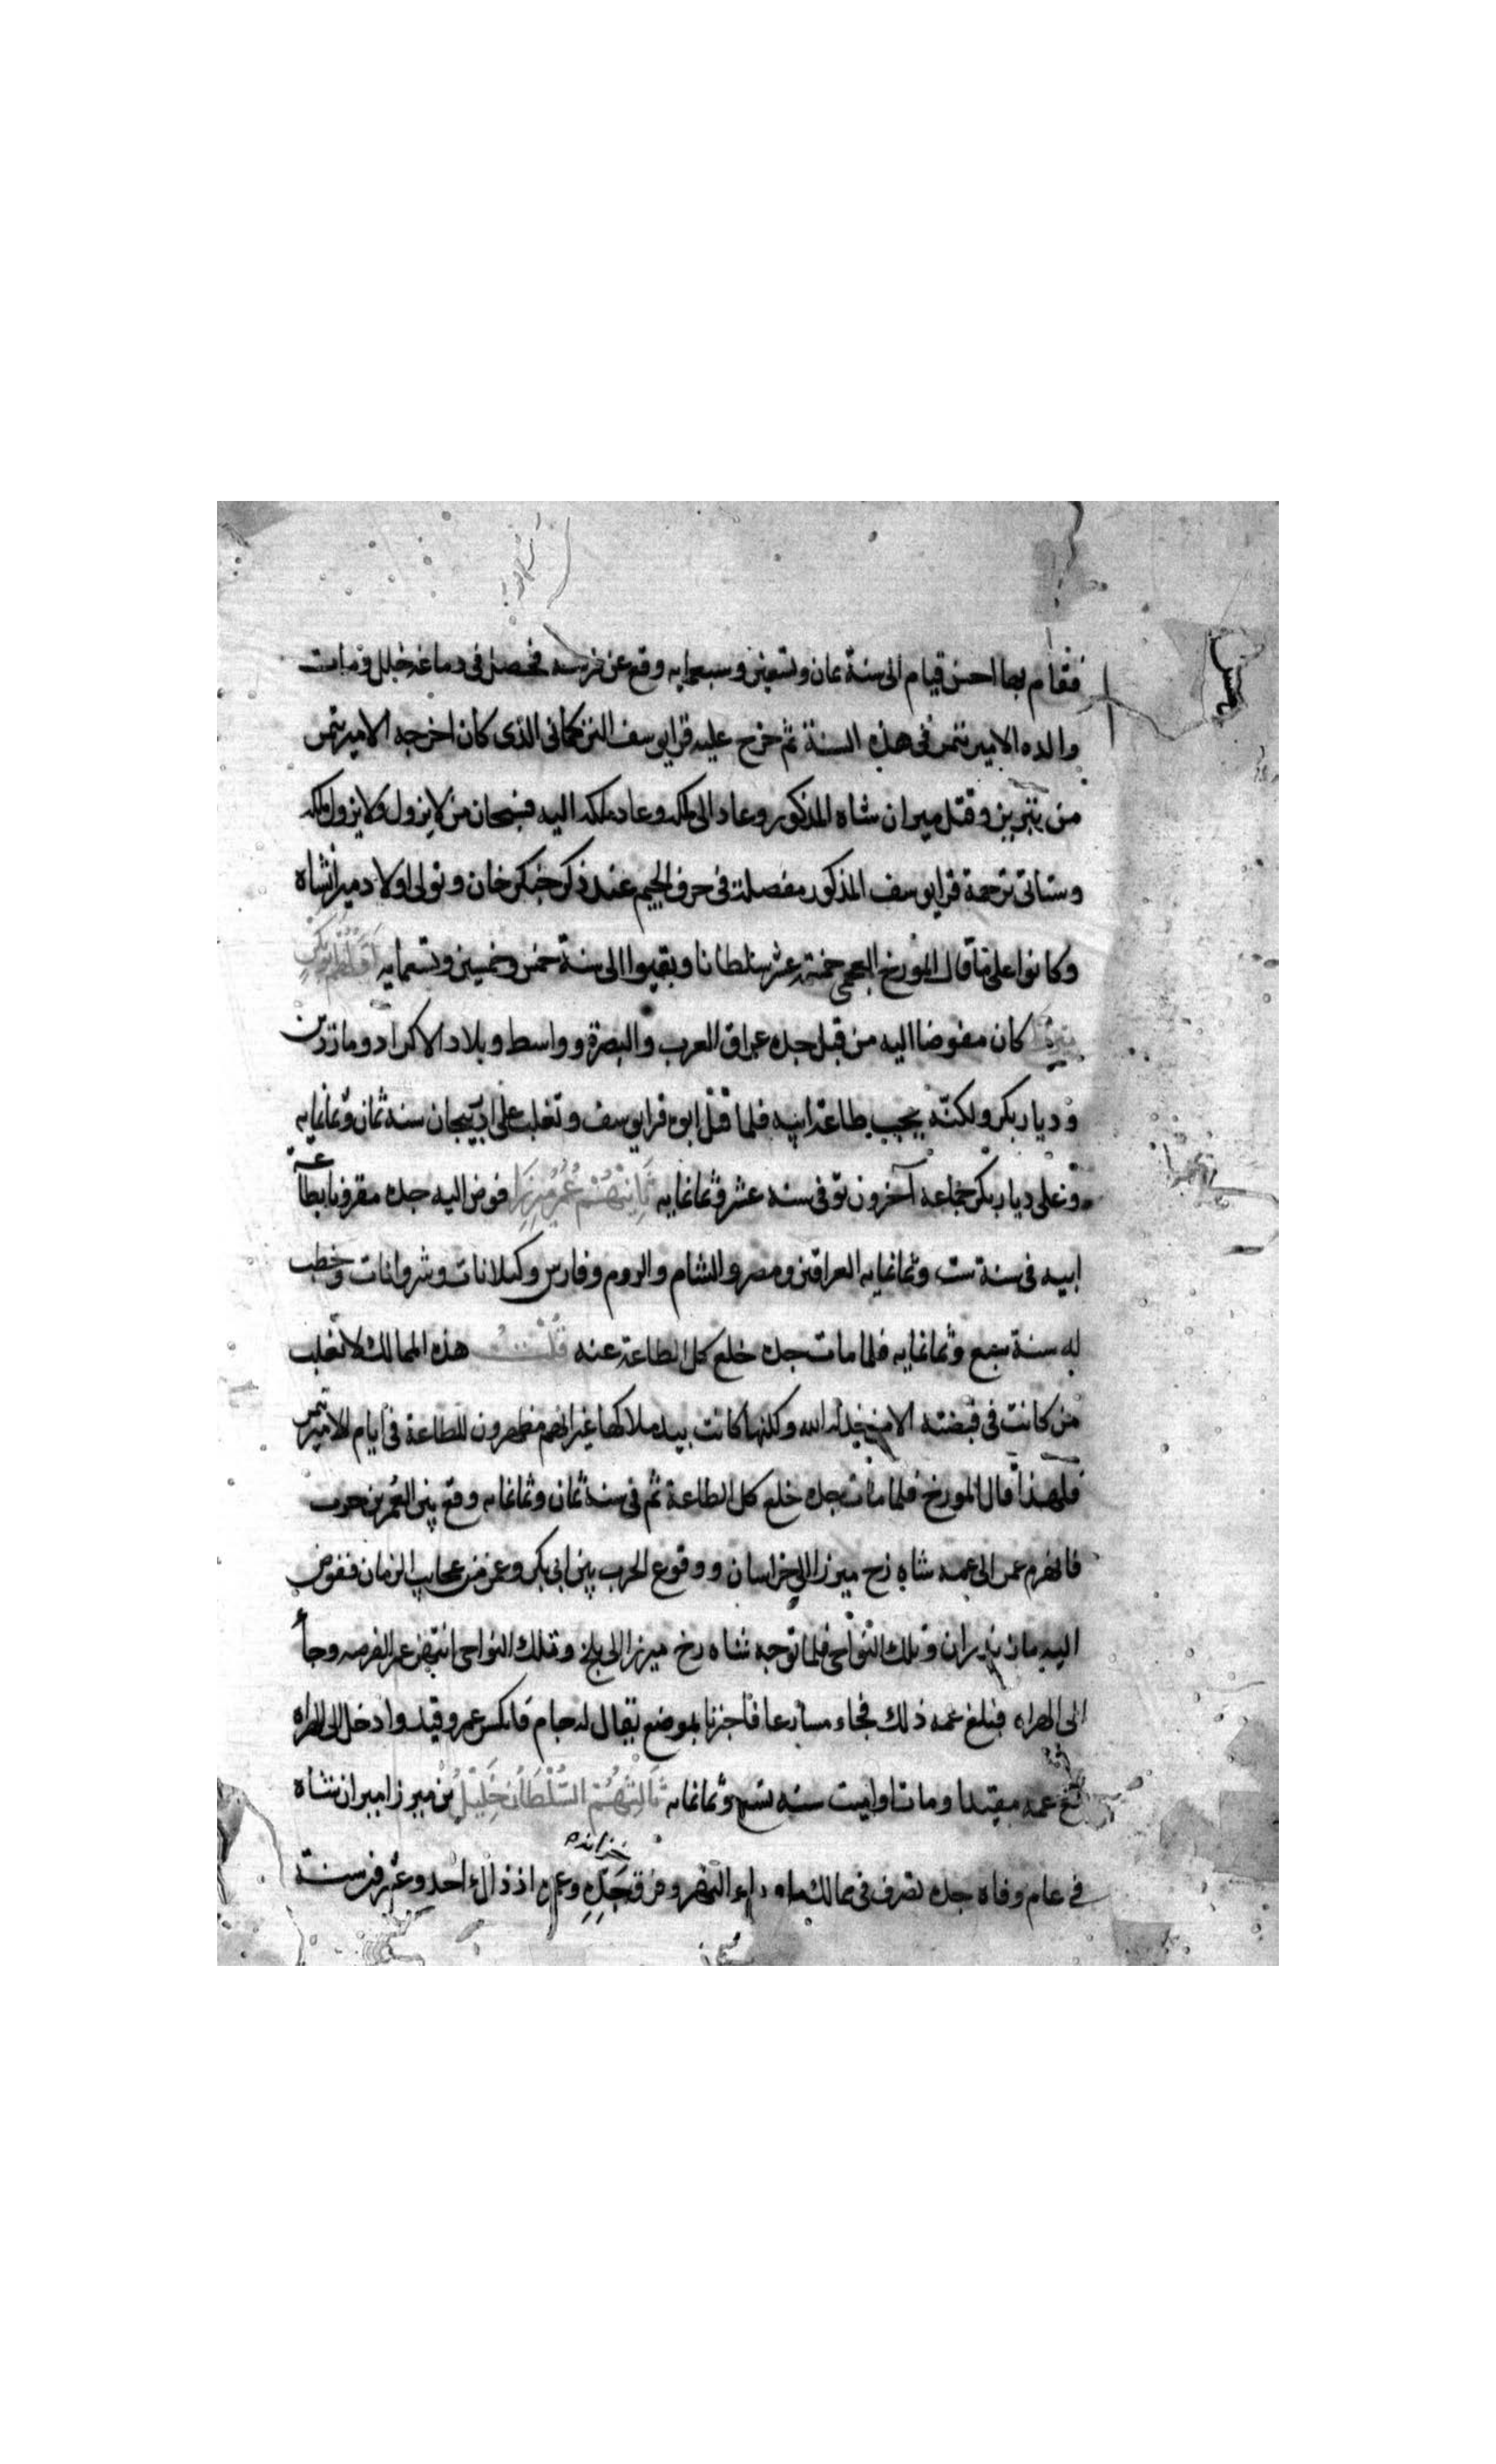 فقام بها احسن قيام الى سنة ثمان وتسعين وسبعمايه وقع عن فرسه فحصل فى دماغه خلل ومات
والده الامير تتمر فى هذه السنة ثم خرج عليه قرايوسف التركمانى الذى كان اخرجه الامير تتمر
من تبريز وقتل ميران شاه المذكور وعاد الى ملكه وعاد ملكه اليه فسبحان من لا يزول ولا يزول ملكه
وستاتى ترجمة قرايوسف المذكور مفصلة فى حرف الجيم عند ذكر جنكز خان وتولى اولاد ميرانشاه
وكانوا على ما قال المورخ العجمى خمسة عشر سلطانا وبقيوا الى سنة خمس وخمسين وتسمايه
كان مفوضا اليه من قبل جده عراق العرب والبصرة وواسط وبلاد الاكراد وماردين
وديار بكر ولكنه يجب طاعة ابيه فلما قتل ابوه قرايوسف وتغلب على اذربيجان سنة ثمان وثمانمايه
وعلى ديار بكر جماعه آخرون توفى سنه عشر وثمانمايه ثَانِيهُمْ عُمَرُ مِيرْزَا فوض اليه جده مقرونا بطاعة
ابيه فى سنة ست وثمانمايه العراقين ومصر والشام والروم وفارس وكيلانات وشروانات وخطب
له سنة سبع وثمانمايه فلما مات جده خلع كل الطاعة عنه قُلْتُ هذه الممالك لا تغلب
من كانت فى قبضته الا الله ولكنها كانت بيد ملاكها غير انهم مظهرون للطاعة فى ايام الامير تتمر
فلهذا قال المورخ فلما مات جده خلع كل الطاعة ثم فى سنة ثمان وثمانمايه وقع بين العمرين حرب
فانهزم عمر الى عمه شاه رخ ميرزا الى خراسان ووقوع الحرب بين ابى بكر وعمر من عجايب الزمان ففوض
اليه مازندران وتلك النواحى فلما توجه شاه رخ ميرزا الى بلخ وتلك النواحى انتهز عمر الفرصه وجأ
الى الهراه فبلغ عمه ذلك فجاء مسارعا بموضع يقال له جام فانكسر عمر وقيد وادخل الى الهراه
مع عمه مقيدا ومات سنه تسع وثمانمايه ثَالِثُهُمْ السُّلْطَانُ خَلِيْلُ بن ميرزا ميران شاه
فى عام وفاة جده تصرف فى ممالك ماوراء النهر وفرق خزانه جَدِّهِ وعمره اذ ذاك احد وعشرون سنة